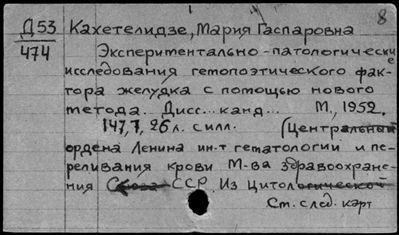 8
Д53 Кахетелидзе, Мария Гаспаровна
474 Экспериментально-патологические
исследования гемопоэтического фак-
тора желудка с помощью нового
метода. Дисс... канд... М., 1952.
147,7, 26 л. с илл. (Центральный
ордена Ленина ин-т гематологии и пе-
реливания крови М-ва здравоохране-
ния Союза ССР. Из Цитологической
См. след. карт